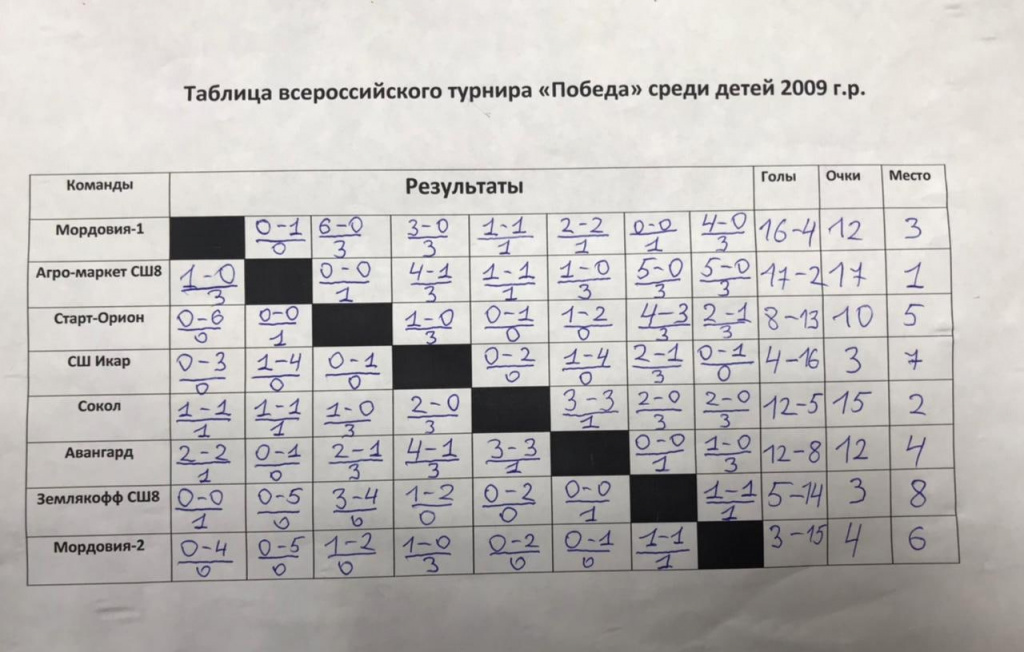 Таблица всероссийского турнира «Победа» среди детей 2009 г.р.
Команды Результаты Голы Очки Место
Мордовия-1 0-1 6-0 3-0 1-1 2-2 0-0 4-0 16-4 12 3
0 3 3 1 1 1 3
Агро-маркет СШ8 1-0 0-0 4-1 1-1 1-0 5-0 5-0 17-2 17 1
3 1 3 1 3 3 3
Старт-Орион 0-6 0-0 1-0 0-1 1-2 4-3 2-1 8-13 10 5
0 1 3 0 0 3 3
СШ Икар 0-3 1-4 0-1 0-2 1-4 2-1 0-1 4-16 3 7
0 0 0 0 0 3 0
Сокол 1-1 1-1 1-0 2-0 3-3 2-0 2-0 12-5 15 2
1 1 3 3 1 3 3
Авангард 2-2 0-1 2-1 4-1 3-3 0-0 1-0 12-8 12 4
1 0 3 3 1 1 3
Землякофф СШ8 0-0 0-5 3-4 1-2 0-2 0-0 1-1 5-14 3 8
1 0 0 0 0 1 1
Мордовия-2 0-4 0-5 1-2 1-0 0-2 0-1 1-1 3-15 4 6
0 0 0 3 0 0 1